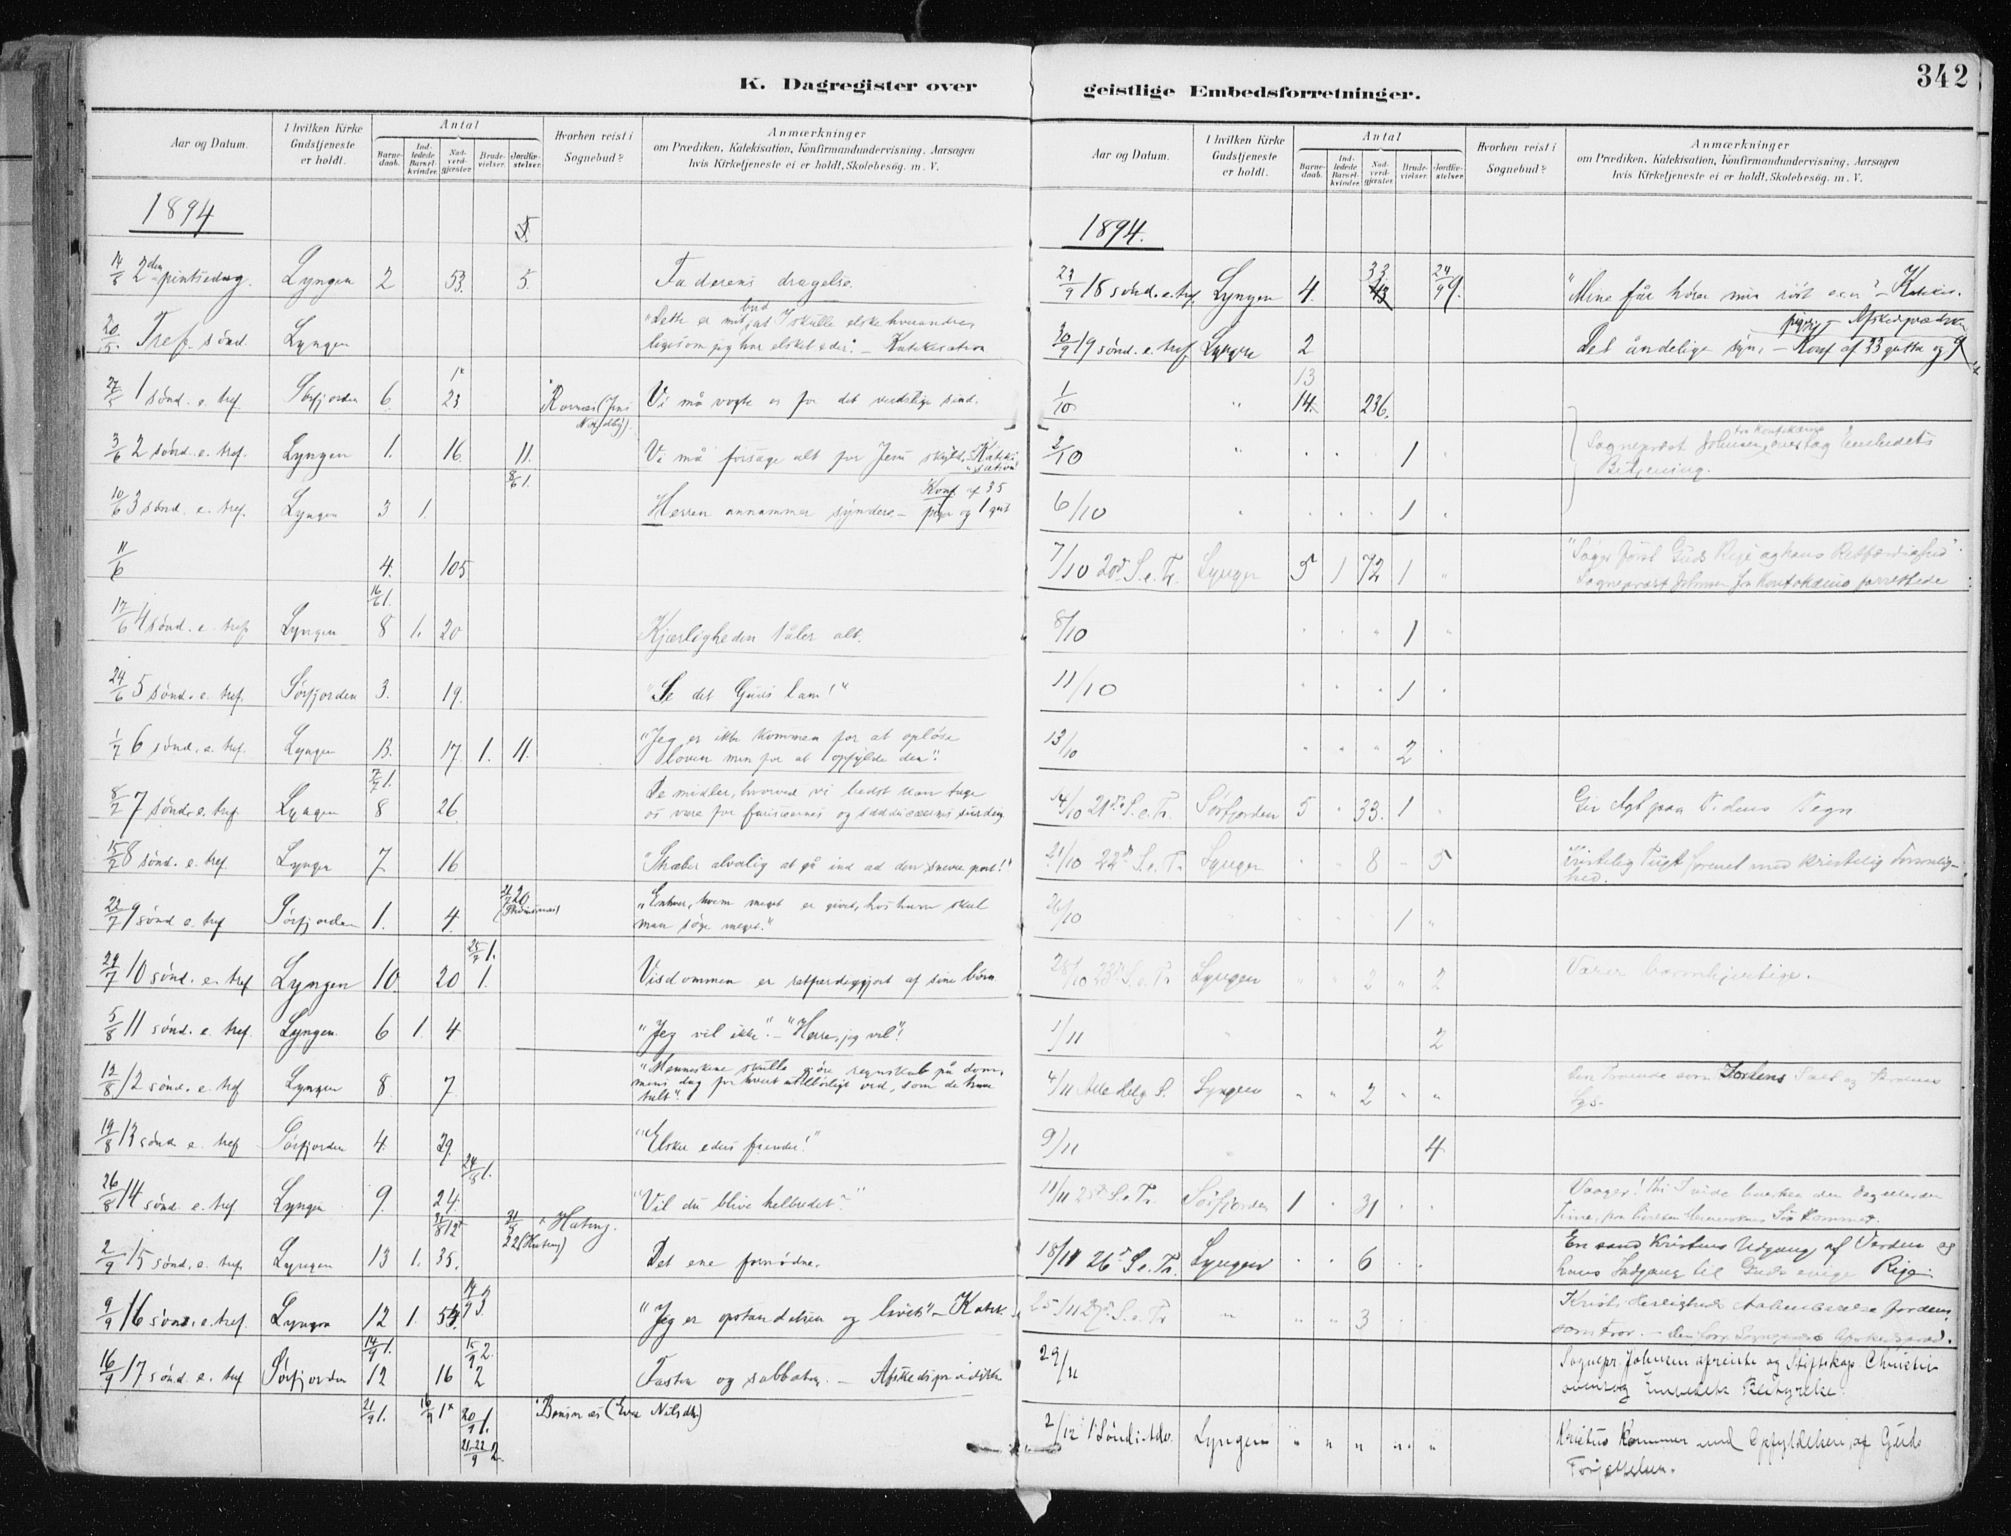 342
K. Dagregister over
Aar og Datum.
I hvilken Kirke Gudstjeneste er holdt.
Antal
Barnedaab.
Indledede Barselkvinder.
Nadverdgjæster.
Brudevielser.
Jordfæstelser.
Hvorhen reist i Sognebud?
Anmærkninger
om Prædiken, Katekisation, Konfirmandundervisning, Aarsagen
hvis Kirketjeneste ei er holdt, Skolebesøg. m. V.
1894
14/5 2den pintsedag. Lyngen 2 53. 5. Faderens dragelse.
20/5 Tref. sønd. Lyngen "Dette er mit bud, at I skulle elske hverandre,
ligesom jeg har elsket eder". – Katekisation
27/5 1 sønd. e. tref. Sørfjorden 6. 23 Vi må vogte os for det verdslige sind.
3/6 2 sønd. e. tref. Lyngen 1. 16. 11. Vi må forsage alt for Jesu skyld.
8/6 1.
10/6 3 sønd. e. tref. Lyngen 3 1. Herren annammer syndere – Konf. af 35 piger og 1 gut
11/6 4. 105
16/6 1.
17/6 4 sønd. e. tref. Lyngen 8 1. 20 Kjærligheden tåler alt.
24/6 5 sønd. e. tref. Sørfjorden 3. 19. "Se det Guds lam!"
1/7 6 sønd. e. tref. Lyngen 13. 17. 1. 11. "Jeg er ikke kommen for at opløse
loven men for at opfylde den".
7/7 1.
8/7 7 sønd. e. tref. Lyngen 8 26 De midler, hvorved vi bedst kan tage
os vare for farisæernes og sadducæernes surdeig
15/7 8 sønd. e. tref. Lyngen 7 16 "Stræber alvorlig at gå ind ad den snevre port!"
22/7 9 sønd e. tref Sørfjorden 1. 4. "Enhver, hvem meget er givet, hos ham skal
man søge meget."
25/7 1.
29/7 10 sønd. e. tref Lyngen 10. 20 1. Visdommen er retfærdiggjort af sine børn
5/8 11 sønd. e. tref. Lyngen. 6 1. 4. "Jeg vil ikke". – "Herre, jeg vil"!
12/8 12 sønd. e. tref Lyngen 8. 7. "Menneskene skulle gjøre regnskab på dom-
mens dag for hvert utilbørligt ord, som de have
talt".
19/8 13 sønd. e. tref Sørfjorden 4. 29. "Elsker eders fiender!"
24/8 1.
26/8 14 sønd. e. tref. Lyngen 9. 24. "Vil du blive helbredet?"
2/9 15 sønd. e. tref. Lyngen 13 1. 35. Det ene fornødne.
9/9 16 sønd. e. tref. Lyngen 12 1. "Jeg er opstandelsen og livet" –
14/9 1. 15/9 2.
16/9 17 sønd. e. tref Sørfjorden 12 16 2 Fasten og sabbaten. – Afskedsprædiken
21/9 1. 16/9 1* 20/9 1.
21-22/9 2.
geistlige Embedsforretninger.
Aar og Datum.
I hvilken Kirke Gudstjeneste er holdt.
Antal
Barnedaab.
Indledede Barselkvinder.
Nadverdgjæster.
Brudevielser.
Jordfæstelser.
Hvorhen reist i Sognebud?
Anmærkninger
om Prædiken, Katekisation, Konfirmandundervisning, Aarsagen
hvis Kirketjeneste ei er holdt, Skolebesøg. m. V.
1894.
23/9 18 sønd. e. tref. Lyngen 4. 33. 24/9 9. "Mine får hører min røst o.s.v." – Katekis.
30/9 19 sønd. e. tref. Lyngen 2 Det åndelige syn. – Konf af 33 gutter og 9 piger – Afskedspræd
1/10 " 13 14. 236.
2/10 " " " " 1 " Sognepræst Johnsen fra Kautokeino overtog Embedets
Betjening.
6/10 " " " " 1 "
7/10 20de S. e. Tr. Lyngen 5 1 72 1 " "Søger først Guds Rige og hans Retfærdighed".
Sognepræst Johnsen fra Kautokeino forrettede
8/10 " " " 1 "
11/10 " " " 1 "
13/10 " " " 2 "
14/10 21de S. e. Tr. Sørfjorden 5 " 33. 1 " Giv Agt paa Tidens Tegn
21/10 22de S. e. Tr. Lyngen " " 8 " 5 Kristelig Tugt forenet med kristelig Forsonlig-
hed.
26/10 " " " 1 "
28/10 23de S. e. Tr Lyngen " " 2 " 2 Værer barmhjertige.
1/11 " 2
4/11 Alle Helg. S. Lyngen " " 2 " " De Troende som Jordens Salt og Verdens
Lys.
9/11 4
11/11 25de S. e. Tr. Sørfjorden 1 " 31 " " Vaager! thi I vide hverken den Dag eller den
Time, paa hvilken Menneskens Søn kommer.
18/11 26de S. e. Tr. Lyngen " " 6 " " En sand Kristens Udgang af Verden og
hans Indgang til Guds evige Rige.
25/11 27de S. e. Tr " " " 3 " Kristi Herligheds Aabenbarelse for dem,
som tror. –
29/11 Sognepr. Johnsen afreiste og Stiftskap. Christie
overtog Embedets Bestyrelse.
2/12 1 Sønd. i Adv. Lyngen " " " " " Kristus kommer med Opfyldelsen af Guds
Forjættelser.